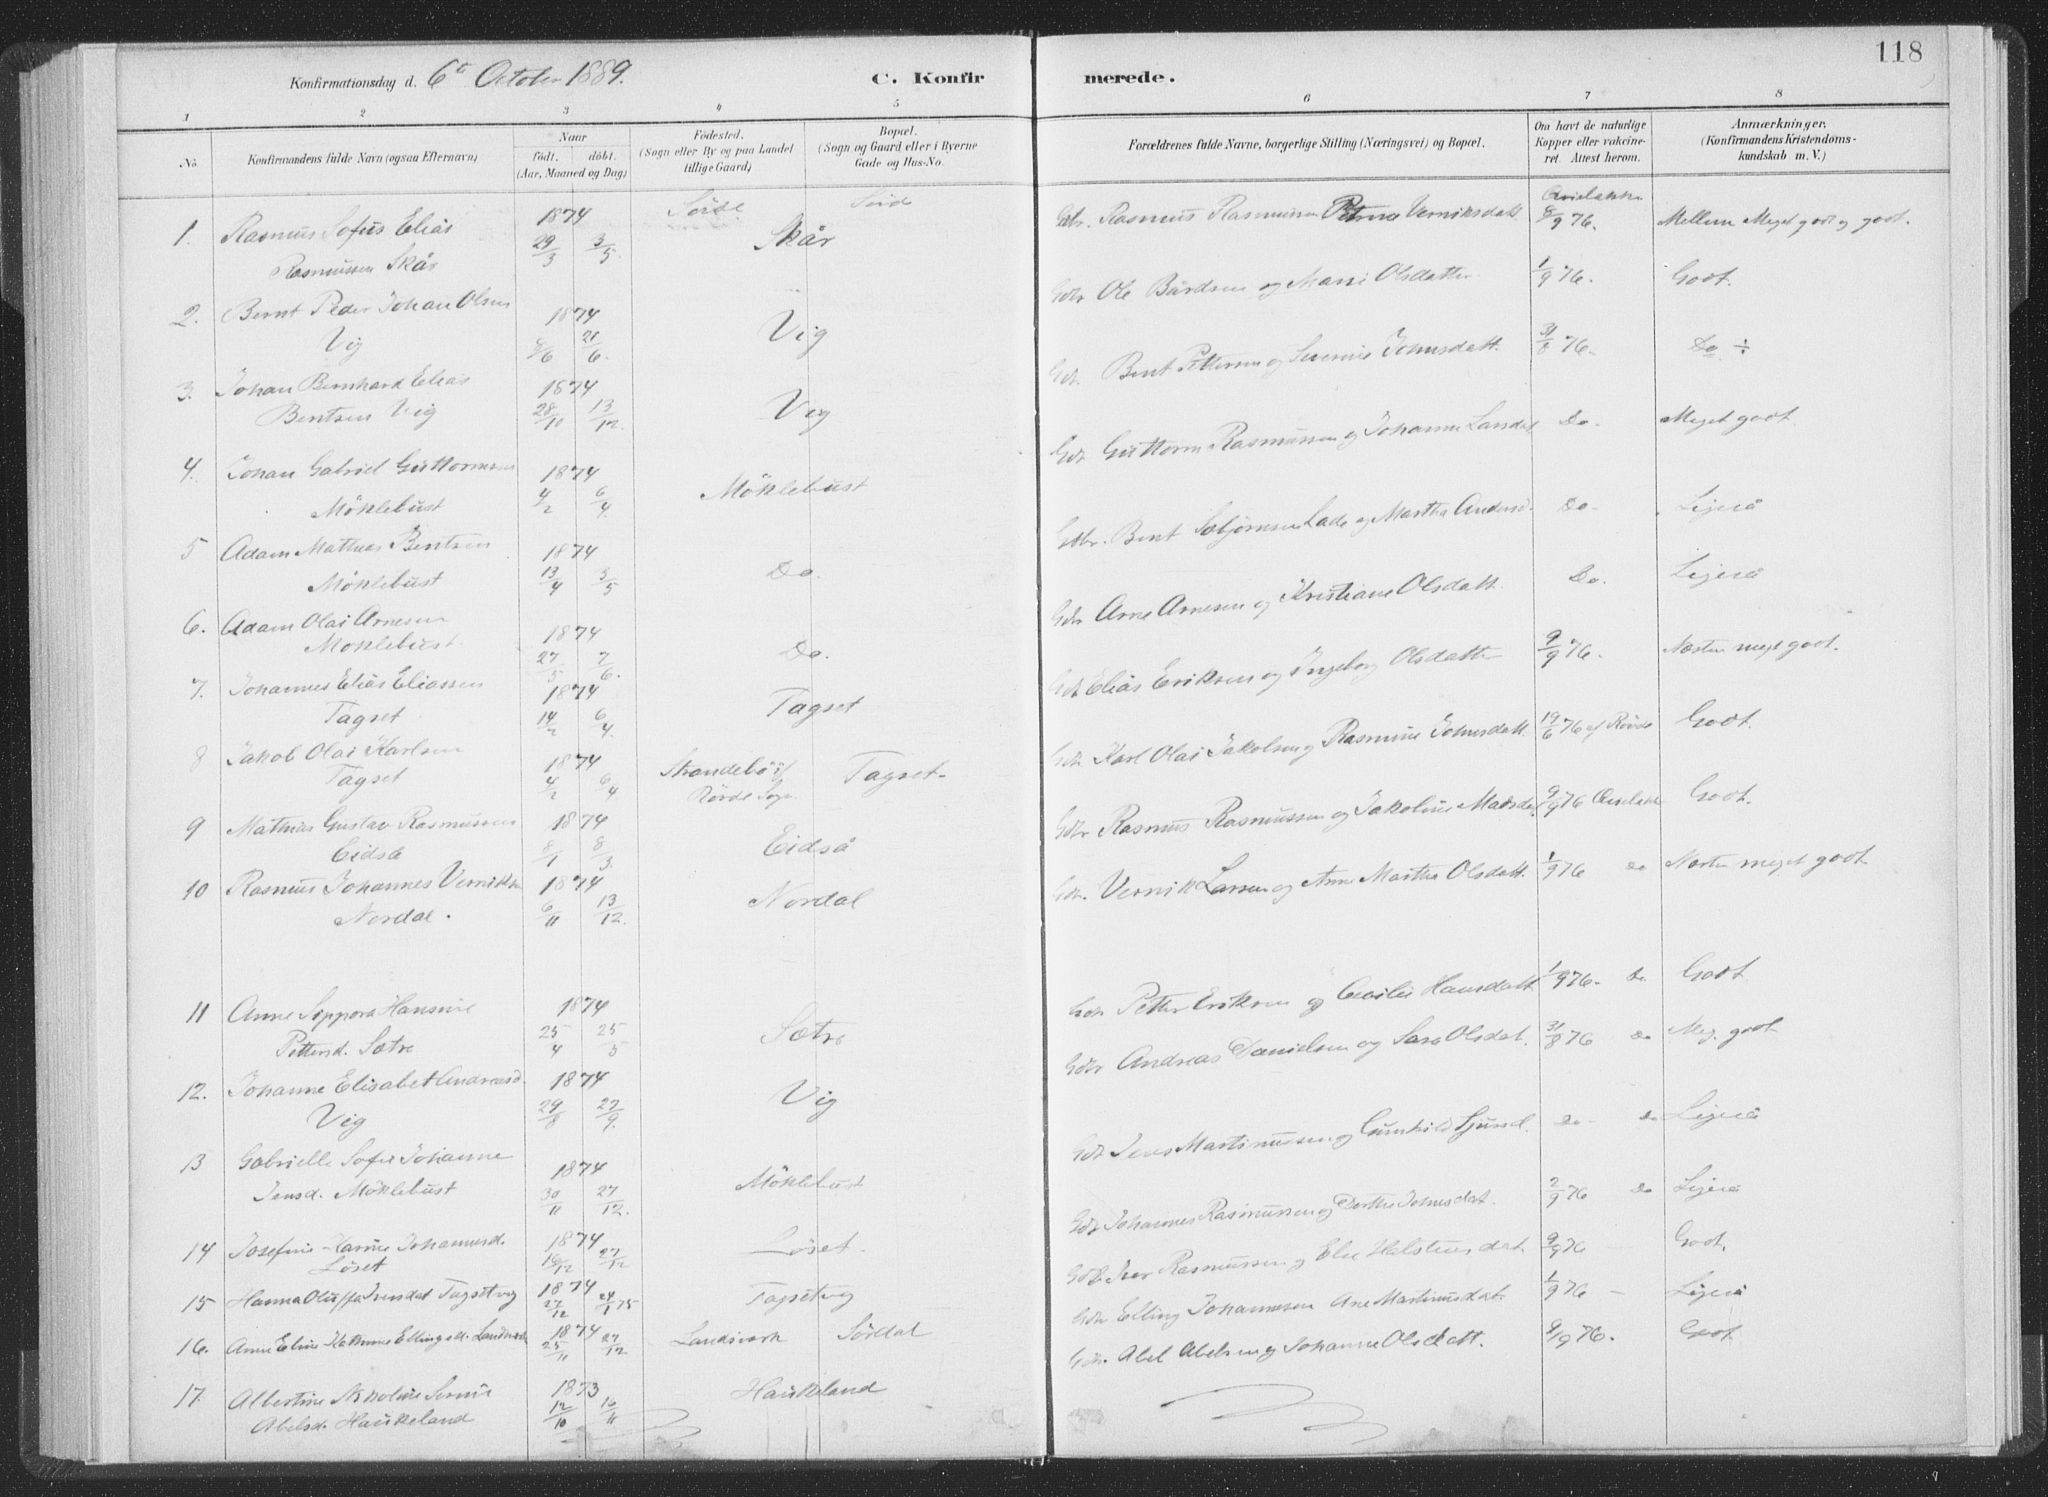 118
Konfirmationsdag d. 6te October 1889.
C. Konfirmerede.
1 2 3 4 5 6 7 8
No.
Konfirmandens fulde Navn (ogsaa Efternavn)
Naar
født. døbt.
(Aar, Maaned og Dag)
Fødested.
(Sogn eller By og paa Landet
tillige Gaard)
Bopæl.
(Sogn og Gaard eller i Byerne
Gade og Hus-No.
Forældrenes fulde Navne, borgerlige Stilling (Næringsvei) og Bopæl.
Om havt de naturlige
Kopper eller vakcine-
ret. Attest herom.
Anmærkninger.
(Konfirmandens Kristendoms-
kundskab m. V.)
1. Rasmus Sofus Elias 1874 Rasmus Rasmussen Verniksdatt 8/9 76. Mellem Meget godt og godt.
Rasmussen Skår 29/3 3/5. Skår
2. Bernt Peder Johan Olsen 1874 Gdbr Ole Bårdsen og Marie Olsdatter 1/9 76. Godt.
Vig 8/6 21/6. Vig
3. Johan Bernhard Elias 1874 Gdbr. Bent Pettersen og Severine Johnsdatt. 31/8 76. Do ÷
Bentsen Vig 28/10 13/12. Vig
4. Johan Gabriel Guttormsen 1874 Guttorm Rasmussen og Johanne Do. Meget godt.
Möklebust 4/2 6/4. Möklebust
5 Adam Mathias Bentsen 1874 Gdbr. Bent Lade og Martha Do. Ligeså
Möklebust 13/4 3/5 Do.
6. Adam Olai Arnesen 1874 Gdbr Arne Arnesen og Kristiane Olsdatt. Do. Ligeså
Möklebust. 27/5 7/6. Do.
7. Johannes Elias Eliassen 1874 Elias Eriksen og Ingeborg Olsdatter 9/9 76. Næsten meget godt.
Tagset 14/2 6/4. Tagset
8 Jakob Olai Karlsen 1874 Karl Olai Jakobsen og Rasmine Johnsdatt. 19/6 76 af Rövde Godt.
Tagset 4/2 6/4 Rövde Sogn. Tagset
9 Mathias Gustav Rasmussen 1874 Rasmus Rasmussen og Jakobine 9/9 76 Godt.
Eidså 8/1 8/3. Eidså
10 Rasmus Johannes Verniksen 1874 Vernik Larsen og Anne Martha Olsdatt. 1/9 76 do Næsten meget godt.
Nordal. 6/11 13/12. Nordal
11 Anne Sippora Hansine 1874 Petter Eriksen og Hansdatt. 1/9 76. do Godt
Pettersd. Sætre 25/4 25/5 Sætre
12. Johanne Elisabet Andreasd. 1874 Andreas Danielsen og Sara Olsdat. 31/8 76 do Meg. godt
Vig 29/8 27/9. Vig
13 Gabrielle Sofie Johanne 1874 Jens Martinussen og Gunhild do do Ligeså
Jensd. Möklebust 30/11 27/12. Möklebust
14 Josefine Karine Johannesd. 1874 Johannes Rasmussen og Dorthe Johnsdat. 2/9 76 do Ligeså
Löset 27/12 Löset.
15 Hanna Oluffa Iversdat Tagsetvig 1874 Iver Rasmussen og Elie Halstensdat. 9/9 76 Godt.
27/12 24/1 75 Tagsetvig
16. Anne Eline Ellingsd. 1874 Elling Johannessen Ane Martinusdat. 1/9 76 Ligeså
25/11 27/12 Sördal
17. Albertine Nikoline 1873 Abel Abelsen og Johanne Olsdatt. 9/9 76. Godt
Abelsd. Haukeland 12/10 16/11 Haukeland